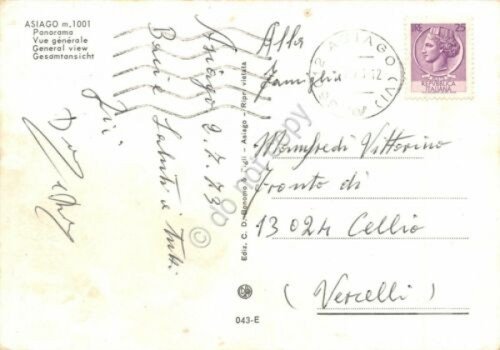 ASIAGO m. 1001
Panorama
Vue générale
General view
Gesamtansicht
Asiago 2.7.73
Baci e Saluti a tutti
Zii
Ediz. C. D. Bonomo & Figli - Asiago - Ripr. vietata
ASIAGO (VI)
12
25
POSTE REPUBBLICA
ITALIANA
Alla
famiglia
Manfredi Vittorino
Fronto di
13024 Cellio
(Vercelli)
043-E
do not copy